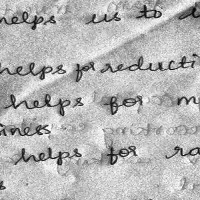 helps us to
helps for reducti
helps for m
iness
helps for ra
s